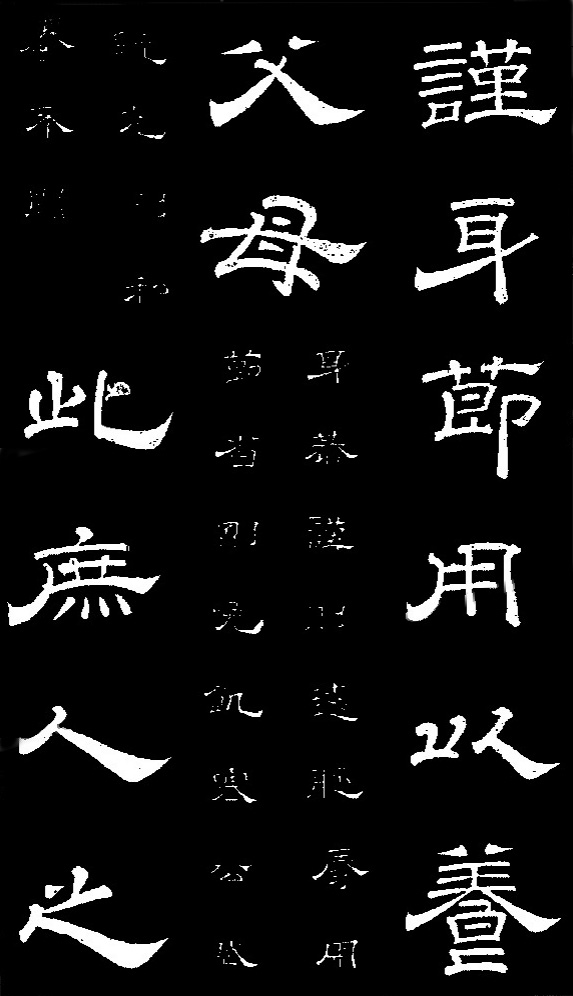 謹身節用以養
父母
身恭謹則遠恥辱用
節省則免飢寒公賦
既充則私
養不闕
此庶人之